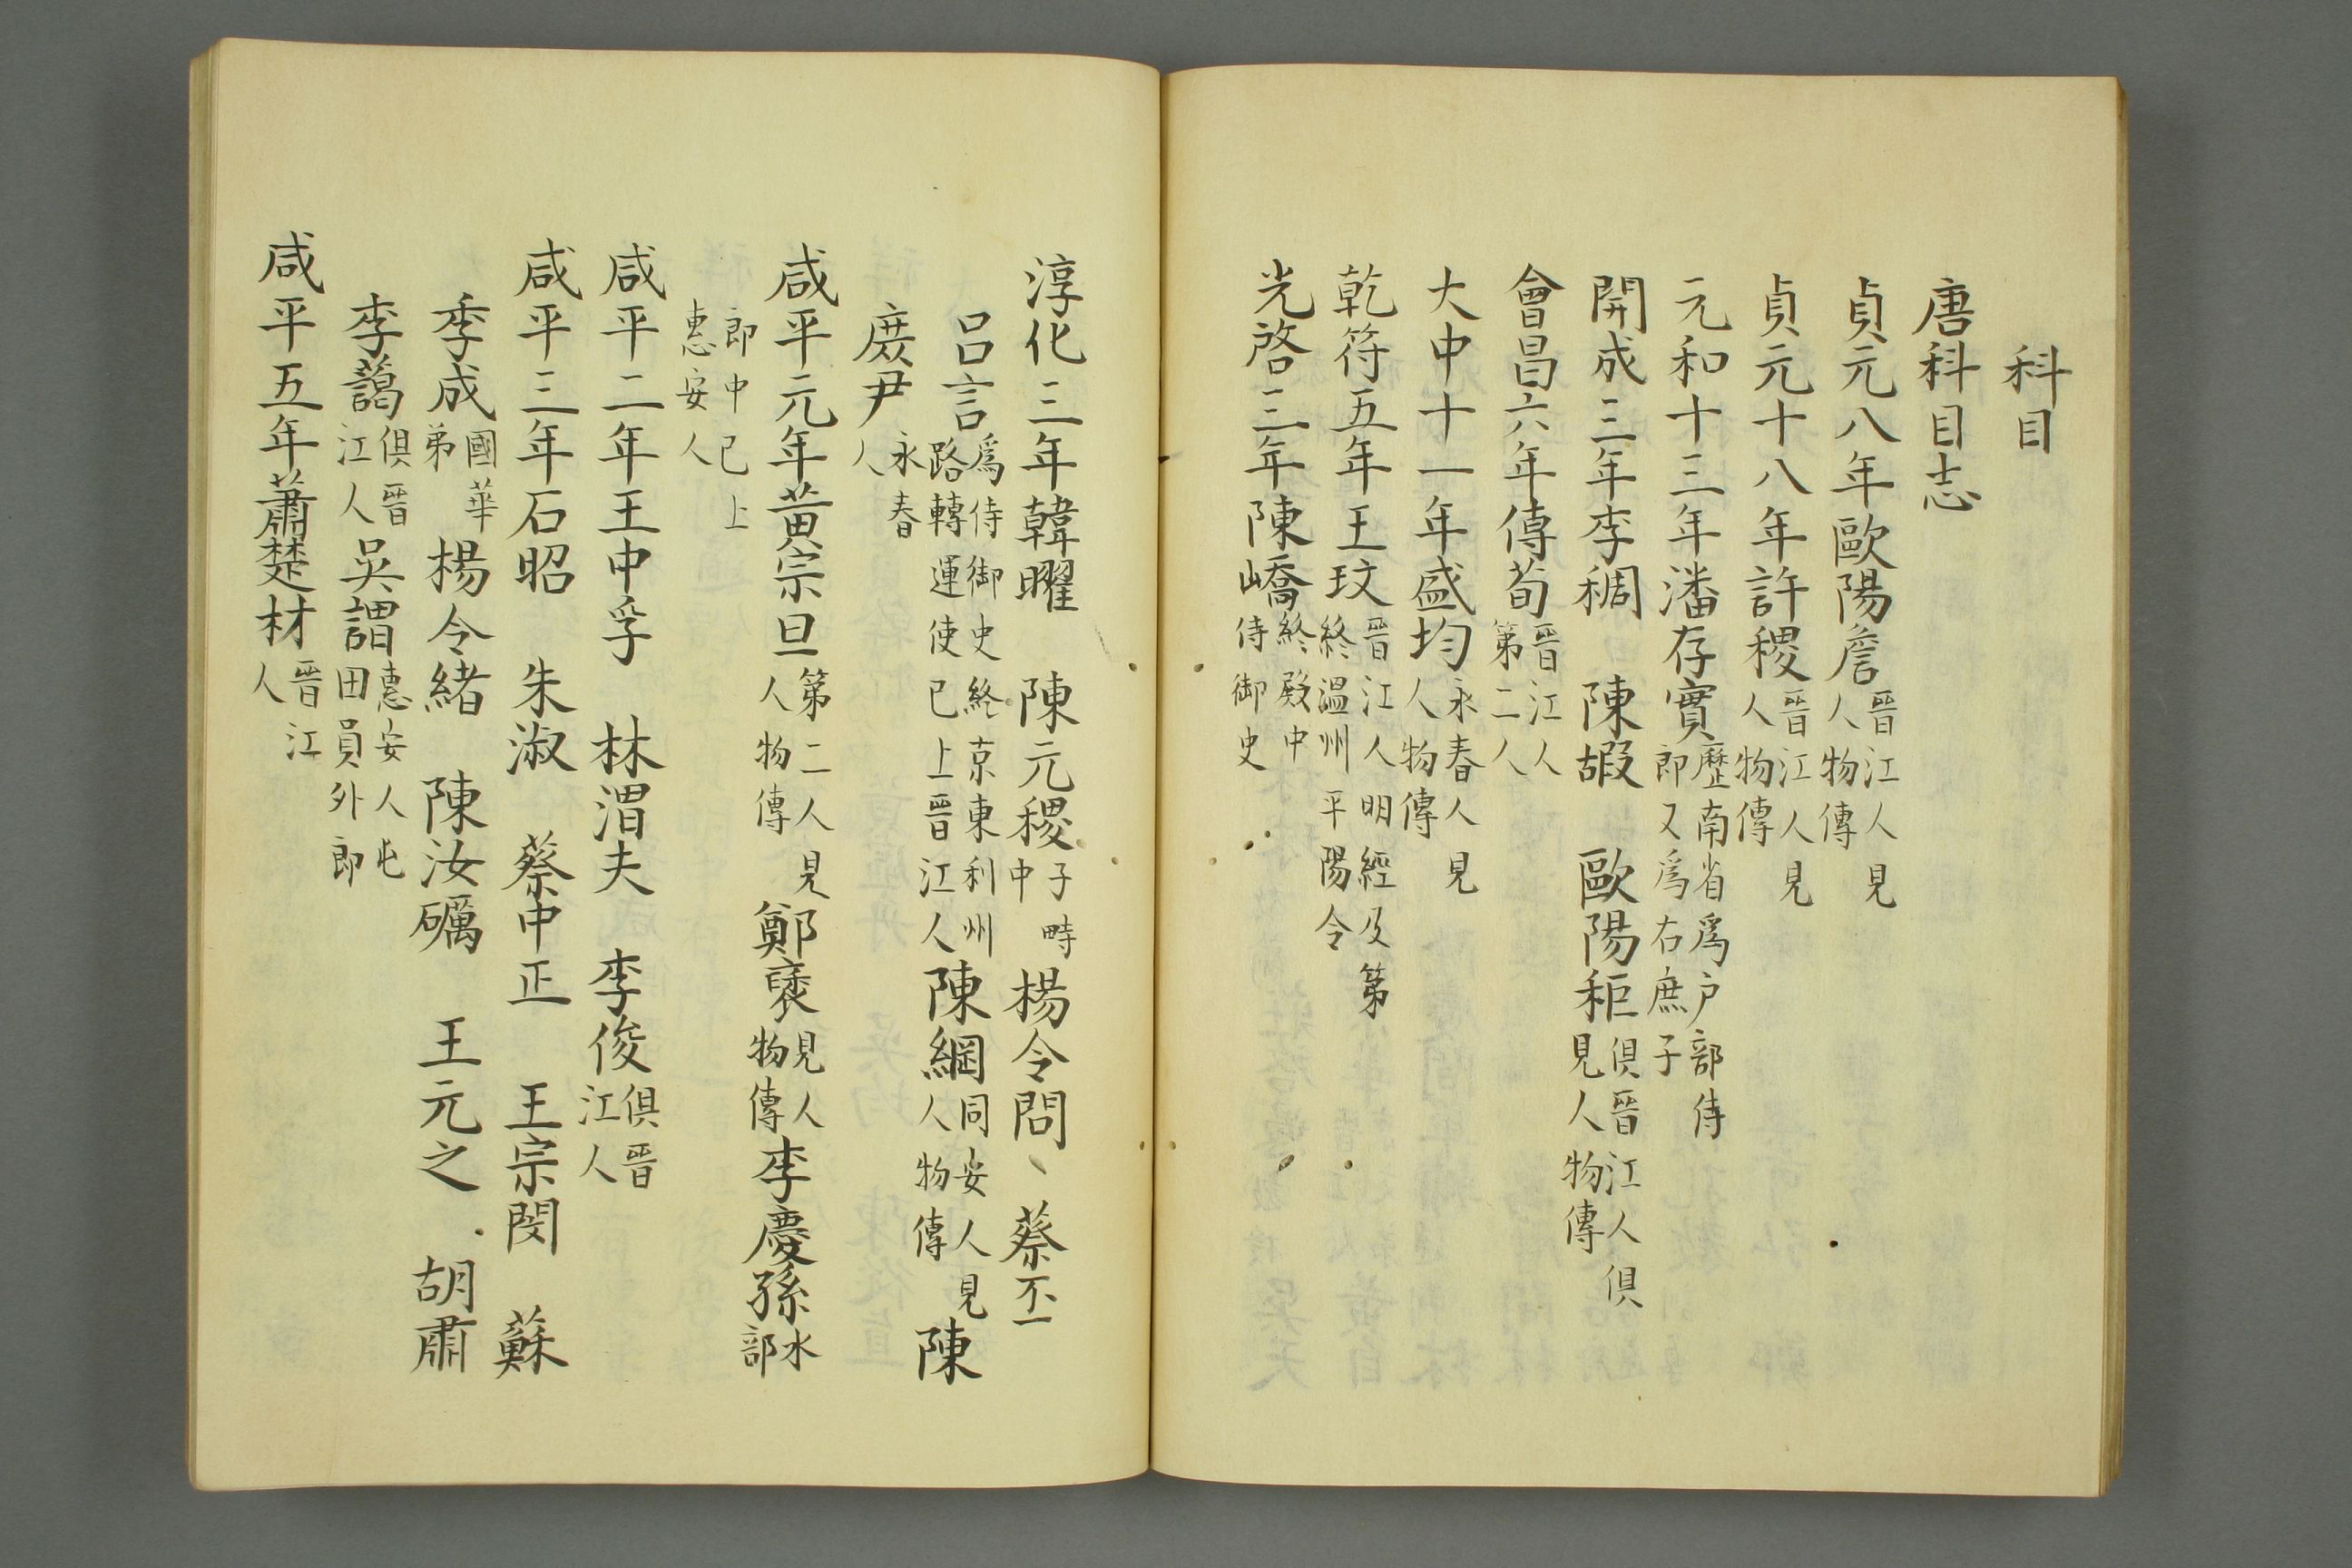 科目
唐科目志
貞元八年歐陽詹晉江人見人物傳
貞元十八年許稷晉江人見人物傳
元和十三年潘存實歷南省爲户部侍郎又爲右庶子
開成三年李稠 陳嘏 歐陽秬俱晉江人俱見人物傳
會昌六年傅荀晉江人第二人
大中十一年盛均永春人見人物傳
乾符五年王玟晉江人明經及第終溫州平陽令
光啓三年陳嶠終殿中侍御史
淳化三年韓曜 陳元稷子畤中 楊令問 蔡丕
呂言爲侍御史終京東利州路轉運使已上晉江人 陳綱同安人見人物傳 陳
庶尹永春人
咸平元年黃宗旦第二人見人物傳 鄭褒見人物傳 李慶孫水部
郎中已上惠安人
咸平二年王中孚 林渭夫 李俊俱晉江人
咸平三年石昭 朱淑 蔡中正 王宗閔 蘇
季成國華弟 楊令緒 陳汝礪 王元之 胡肅
李藹俱晉江人 吳謂惠安人屯田員外郎
咸平五年蕭楚材晉江人